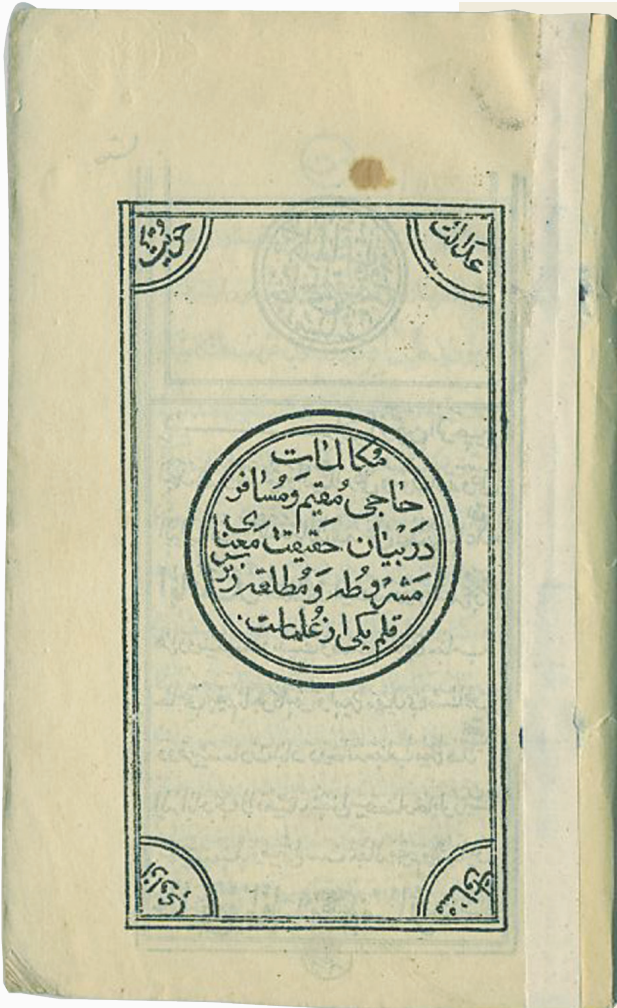 عدالت
حریت
مکالمات
حاجی مُقیم وَ مُسافر
دَر بیان حَقیقت مَعنای
مَشروُطه وَ مُطلقه زیر
قلم یکی از عُلما ملت
مساوات